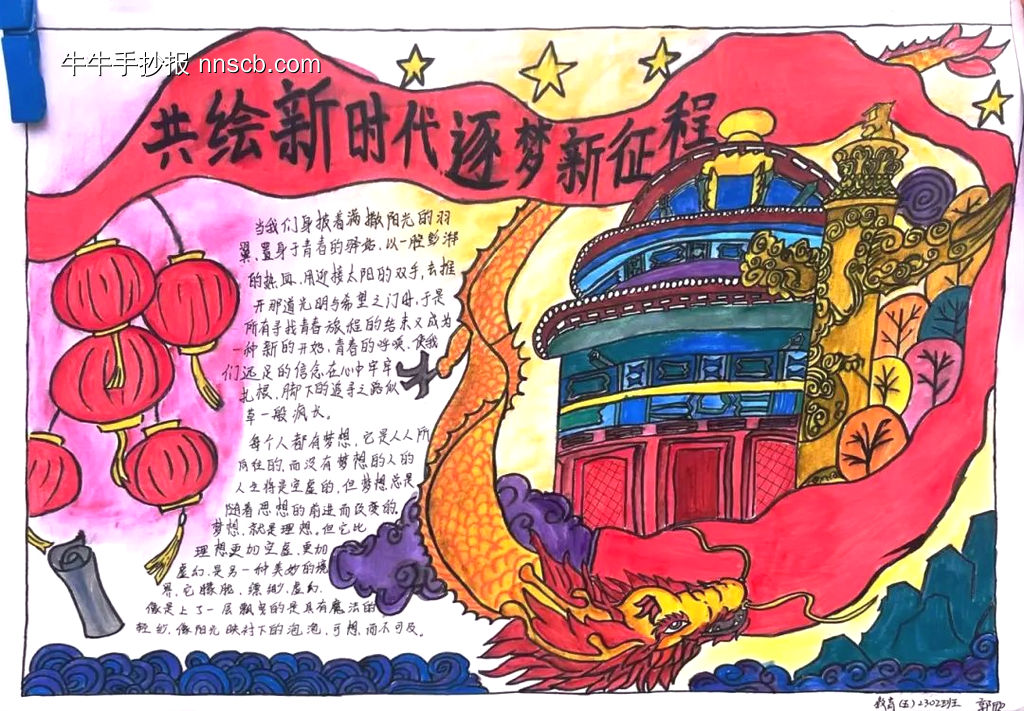 牛牛手抄报 nnscb.com
共绘新时代逐梦新征程
当我们身披着满撒阳光的羽
翼,置身于青春的驿站,以一腔澎湃
的热血,用迎接太阳的双手,去推
开那道光明与希望之门时,于是
所有寻找青春旅程的结束又成为
一种新的开始,青春的呼唤,使我
们远足的信念在心中牢牢
扎根,脚下的追寻之路似
草一般疯长。
每个人都有梦想,它是人人所
向往的,而没有梦想的人的
人生将是空虚的,但梦想总是
随着思想的前进而改变的。
梦想,就是理想。但它比
理想更加空虚,更加
虚幻,是另一种美妙的境
界,它朦胧,缥缈,虚幻,
像是上了一层飘曳的是具有魔法的
轻纱,像阳光映衬下的泡泡,可想,而不可及。
教育(五)2302班